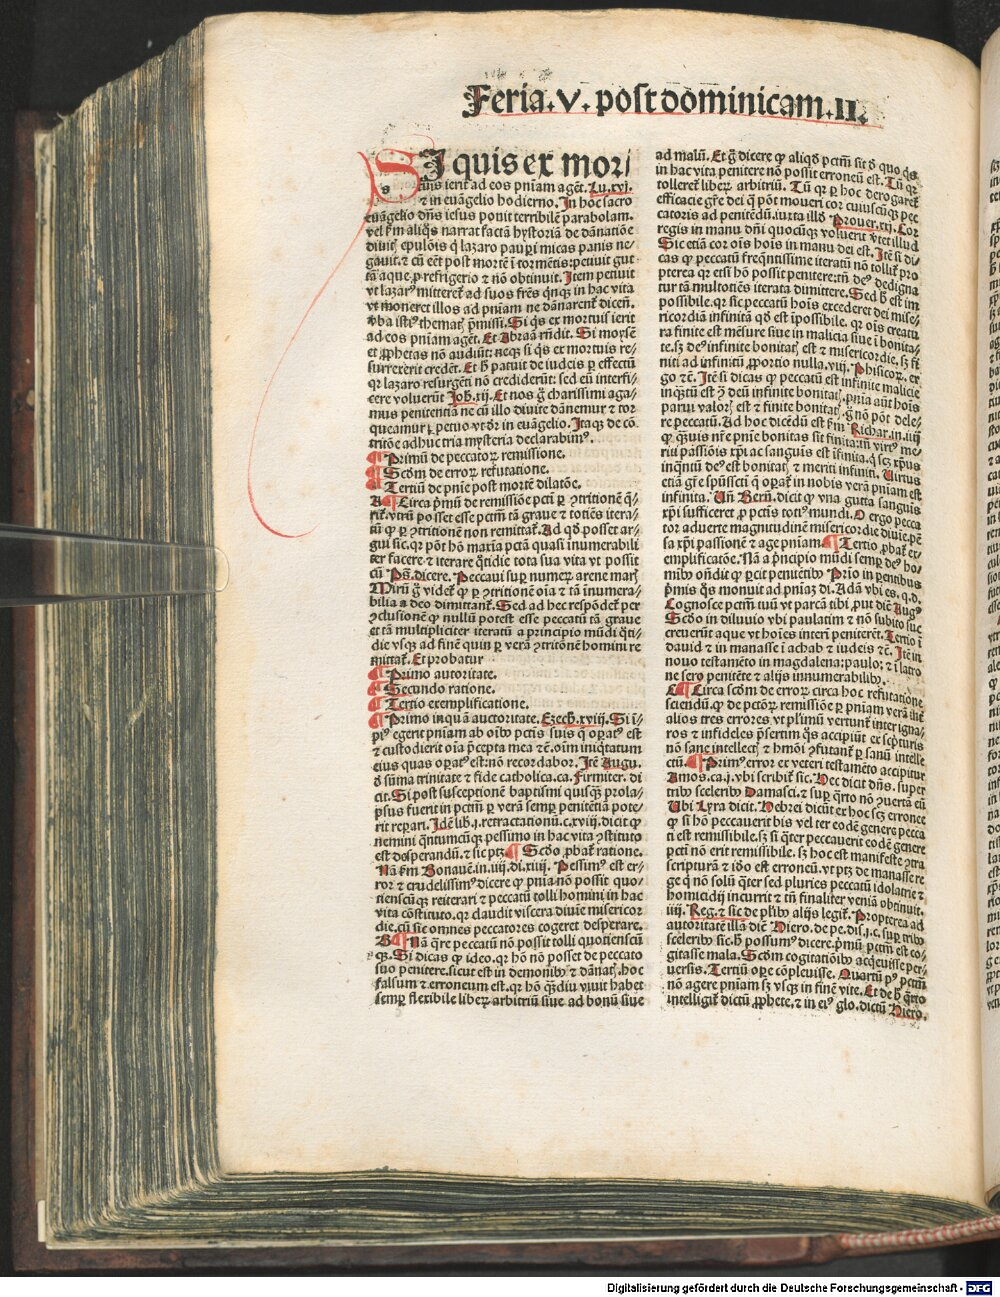 Feria.v.post dominicam.II.
SI quis ex mor/
tuis ierit ad eos pniam agēt. Lu.xvj.
⁊ in euāgelio hodierno. In hoc sacro
euāgelio dn̄s iesus ponit terribilē parabolam.
vel ẜm aliq̄s narrat factā hystoriā de dānatiōe
diuitꝭ epulōis q̇ lazaro pauꝑi micas panis ne-
gauit. ⁊ cū eēt post mortē ī tormētis: petiuit gut
tā aque ꝓ refrigerio ⁊ nō obtinuit. Item petiuit
vt lazarꝰ mitteret̄ ad suos fr̄es qn̄qꝫ in hac vita
vt moneret illos ad pniam ne dānarent̄ dicen̄.
v̄ba isti⁹ thematꝭ p̄missi. Si q̇s ex mortuis ierit
ad eos pniam agēt. Et Abraā rn̄dit. Si moysēn
et ꝓphetas nō audiūt: neqꝫ si q̇s ex mortuis re-
surrexerit credēt. Et h̄ patuit de iudeis ꝑ effectū
qꝛ lazaro resurgēti nō crediderūt: sed eū interfi-
cere voluerūt Joh̄.xij. Et nos g̊ charissimi aga-
mus penitentiā ne cū illo diuite dānemur ⁊ tor
queamur ꝑpetuo vt dr̄ in euāgelio. Itaqꝫ de cō
tritōe adhuc tria mysteria declarabim⁹.
¶ Primū de peccatoꝝ remissione.
¶ Scd̄m de erroꝝ refutatione.
¶ Tertiū de pn̄ie post mortē dilatōe.
A ¶ Circa p̄mū de remissiōe pcti ꝑ ꝯtritionē q̄-
rit̄. vtrū posset esse pctm̄ tā graue ⁊ totiēs itera-
tū ꝙ ꝑ ꝯtritionē non remittat̄. Ad qd̄ posset ar-
gui sic. qꝛ pōt hō maxīa pctā quasi inumerabili
ter facere ⁊ iterare q̄tidie tota sua vita vt possit
cū Ps̄. dicere. Peccaui suꝑ numeꝝ arene marꝭ
Mirū g̊ videt̄ ꝙ ꝑ ꝯtritionē oīa ⁊ tā inumera-
bilia a deo dimittant̄. Sed ad hec respōdet̄ per
ꝯclusionē ꝙ nullū potest esse peccatū tā graue
et tā multipliciter iteratū a principio mūdi q̄ti-
die vsqꝫ ad finē quin ꝑ verā ꝯtritōnē homini re
mittat̄. Et probatur
¶ Primo autoritate.
¶ Secundo ratione.
¶ Tertio exemplificatione.
¶ Primo inquā auctoritate. Ezech̄.xviij. Si ī-
pi⁹ egerit pniam ab oīb⁹ pctis suis q̄ oꝑat⁹ est
⁊ custodierit oīa p̄cepta mea ⁊c̄. oīm iniq̄tatum
eius quas oꝑat⁹ est: nō recordabor. Itē Augu.
d̄ sūma trinitate ⁊ fide catholica.ca. Firmiter. di
cit. Si post susceptionē baptismi quisqꝫ prola-
psus fuerit in pctm̄ ꝑ verā semꝑ penitētiā pote-
rit reꝑari. Idē lib̄.j. retractationū.c.xviij. dicit ꝙ
nemini q̄ntumcūqꝫ pessimo in hac vita ꝯstituto
est desperandū. ⁊ sic ptꝫ ¶ Scd̄o ꝓbat̄ ratione.
Nā ẜm Bonauē.in.iiij.di.xiiij. Pessim⁹ est er-
ror ⁊ crudelissim⁹ dicere ꝙ pnia nō possit quo-
tienscūqꝫ reiterari ⁊ peccatū tolli homini in hac
vita cōstituto. qꝛ claudit viscera diuīe misericor
die. cū sic omnes peccatores cogeret desperare.
B ¶ Nā q̄re peccatū nō possit tolli quotienscū
qꝫ. Si dicas ꝙ ideo. qꝛ hō nō posset de peccato
suo penitere. sicut est in demonib⁹ ⁊ dānatꝭ. hoc
falsum ⁊ erroneum est. qꝛ hō q̄ꝫdiu viuit habet
semꝑ flexibile liberꝝ arbitriū siue ad bonū siue
ad malū. Et g̊ dicere ꝙ aliqd̄ pctm̄ sit d̄ quo q̇s
in hac vita penitere nō possit erroneū est. Tū qꝛ
tolleret̄ liberꝝ arbitriū. Tū qꝛ ꝑ hoc derogaret̄
efficacie gr̄e dei q̄ pōt moueri cor cuiuscūqꝫ pec
catoris ad penitēdū. iuxta illd̄ Prouer.xxj. Cor
regis in manu dn̄i quocūqꝫ voluerit vertet illud
Sic etiā cor oīs hoīs in manu dei est. Itē si di-
cas ꝙ peccatū freq̄ntissime iteratū nō tollit̄ pro
pterea qꝛ etsi hō possit penitere: tn̄ de⁹ dedigna
tur tā multotiēs iterata dimittere. Sed h̄ est im
possibile. qꝛ sic peccatū hoīs excederet dei mise-
ricordiā infinitā qd̄ est īpossibile. qꝛ oīs creatu
ra finite est mēsure siue in malicia siue ī bonita-
te. sꝫ de⁹ infinite bonitatꝭ est ⁊ misericordie. sꝫ fi
niti ad infinitū ꝓportio nulla. viij. Phisicoꝝ. er
go ⁊c̄. Itē si dicas ꝙ peccatū est infinite malicie
inq̄tū est ꝯ deū infinite bonitatꝭ. pnia aūt hoīs
parui valorꝭ est ⁊ finite bonitatꝭ. g̊ nō pōt dele-
re peccatū. Ad hoc dicēdū est ẜm Richar.in.iiij
ꝙ q̄ꝫuis nr̄e pnie bonitas sit finita: tn̄ virt⁹ me-
rii passiōis xp̄i ac sanguis est īfinita. q̄ sꝫ xp̄us
inq̄ntū de⁹ est bonitatꝭ ⁊ meriti infiniti. Virtus
etiā gr̄e spūssctī q̄ oꝑat̄ in nobis verā pniam est
infinita. Vn̄ Bern̄. dicit ꝙ vna gutta sanguis
xp̄i sufficeret ꝓ pctīs toti⁹ mundi. O ergo pecca
tor aduerte magnitudinē misericordie diuīe. pē
sa xp̄i passionē ⁊ age pniam. ¶ Tertio ꝓbat̄ ex-
emplificatōe. Nā a p̄ncipio mūdi semꝑ de⁹ ho-
mib⁹ on̄dit ꝙ ꝑcit penitētib⁹ Prīo in ꝑentibus
p̄mis q̇s monuit ad pniaꝫ di. Adā vbi es. q.d.
Cognosce pctm̄ tuū vt parcā tibi. put dic̄ Aug⁹
Scd̄o in diluuio vbi paulatim ⁊ nō subito suc
creuerūt aque vt hoīes interī peniterēt. Tertio ī
dauid ⁊ in manasse ī achab ⁊ iudeis ⁊c̄. Itē in
nouo testamēto in magdalena: paulo: ⁊ ī latro
ne sero penitēte ⁊ alijs innumerabilib⁹.
C ¶ Circa scd̄m de erroꝝ circa hoc refutatiōe
sciendū. ꝙ de pctōꝝ remissiōe ꝑ pniam verā
alios tres errores vt plīmū vertunt̄ inter igna-
ros ⁊ infideles p̄sertim q̇s accipiūt ex sc̄pturis
nō sane intellectꝭ ⁊ hmōi ꝯfutant̄ ꝑ sanū intelle
ctū. ¶ Prim⁹ error ex veteri testamēto accipitur
Amos.ca.j. vbi scribit̄ sic. Hec dicit dn̄s. super
trib⁹ scelerib⁹ Damasci. ⁊ suꝑ q̄rto nō ꝯuertā eū
Vbi Lyra dicit. Hebrei dicūt ex hoc sꝫ erronee
ꝙ si hō peccauerit bis vel ter eodē genere pecca
ti est remissibile. sꝫ si q̄ter peccauerit eodē genere
pcti nō erit remissibile. sꝫ hoc est manifeste ꝯtra
scripturā ⁊ iō est erroneū. vt ptꝫ de manasse re
ge q̇ nō solū q̄ter sed pluries peccatū idolatrie ⁊
homicidij incurrit ⁊ tn̄ finaliter veniā obtinuit.
iiij. Reg. ⁊ sic de plīb⁹ alijs legit̄. Propterea ad
autoritatē illā dic̄ Hiero. de pe. dis.j.c. suꝑ trib⁹
sceleribꝰ sic. h̄ possum⁹ dicere. p̄mū pctm̄ est co-
gitasse mala. Scd̄m cogitatiōib⁹ acq̇euisse per-
uersis. Tertiū oꝑe cōpleuisse. Quartū p⁹ pctm̄
nō agere pniam sꝫ vsqꝫ in finē vite. Et de h̄ q̄rto
intelligit̄ dictū ꝓphete. ⁊ in ei⁹ glo. dictū Hiero.
Digitalisierung gefördert durch die Deutsche Forschungsgemeinschaft - DFG